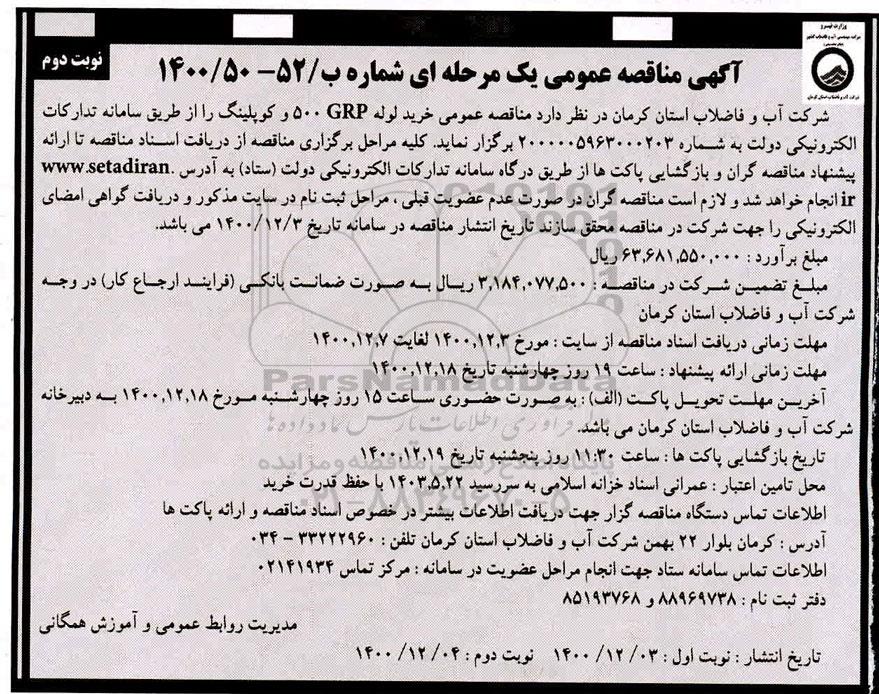 وزارت نیرو
شرکت مهندسی آب و فاضلاب کشور
شرکت آب و فاضلاب استان کرمان
نوبت دوم
آگهی مناقصه عمومی یک مرحله ای شماره ب/۵۲- ۱۴۰۰/۵۰
شرکت آب و فاضلاب استان کرمان در نظر دارد مناقصه عمومی خرید لوله GRP ۵۰۰ و کوپلینگ را از طریق سامانه تدارکات
الکترونیکی دولت به شماره ۲۰۰۰۰۰۵۹۶۳۰۰۰۲۰۳ برگزار نماید. کلیه مراحل برگزاری مناقصه از دریافت اسناد مناقصه تا ارائه
پیشنهاد مناقصه گران و بازگشایی پاکت ها از طریق درگاه سامانه تدارکات الکترونیکی دولت (ستاد) به آدرس www.setadiran.
ir انجام خواهد شد و لازم است مناقصه گران در صورت عدم عضویت قبلی ، مراحل ثبت نام در سایت مذکور و دریافت گواهی امضای
الکترونیکی را جهت شرکت در مناقصه محقق سازند تاریخ انتشار مناقصه در سامانه تاریخ ۱۴۰۰/۱۲/۳ می باشد.
مبلغ برآورد : ۶۳,۶۸۱,۵۵۰,۰۰۰ ریال
مبلغ تضمین شرکت در مناقصه : ۳,۱۸۴,۰۷۷,۵۰۰ ریال به صورت ضمانت بانکی (فرایند ارجاع کار) در وجه
شرکت آب و فاضلاب استان کرمان
مهلت زمانی دریافت اسناد مناقصه از سایت : مورخ ۱۴۰۰,۱۲,۳ لغایت ۱۴۰۰,۱۲,۷
مهلت زمانی ارائه پیشنهاد : ساعت ۱۹ روز چهارشنبه تاریخ ۱۴۰۰,۱۲,۱۸
آخرین مهلت تحویل پاکت (الف) : به صورت حضوری ساعت ۱۵ روز چهارشنبه مورخ ۱۴۰۰,۱۲,۱۸ به دبیرخانه
شرکت آب و فاضلاب استان کرمان می باشد.
تاریخ بازگشایی پاکت ها : ساعت ۱۱:۳۰ روز پنجشنبه تاریخ ۱۴۰۰,۱۲,۱۹
محل تامین اعتبار : عمرانی اسناد خزانه اسلامی به سررسید ۱۴۰۳,۵,۲۲ با حفظ قدرت خرید
اطلاعات تماس دستگاه مناقصه گزار جهت دریافت اطلاعات بیشتر در خصوص اسناد مناقصه و ارائه پاکت ها
آدرس : کرمان بلوار ۲۲ بهمن شرکت آب و فاضلاب استان کرمان تلفن : ۳۳۲۲۲۹۶۰ - ۰۳۴
اطلاعات تماس سامانه ستاد جهت انجام مراحل عضویت در سامانه : مرکز تماس ۰۲۱۴۱۹۳۴
دفتر ثبت نام : ۸۸۹۶۹۷۳۸ و ۸۵۱۹۳۷۶۸
مدیریت روابط عمومی و آموزش همگانی
تاریخ انتشار : نوبت اول : ۰۳ /۱۲ /۱۴۰۰ نوبت دوم : ۰۴ /۱۲ /۱۴۰۰
ParsNamadData
پایگاه اطلاع رسانی مناقصه و مزایده
۰۲۱-۸۸۳۴۹۶۷۰-۵